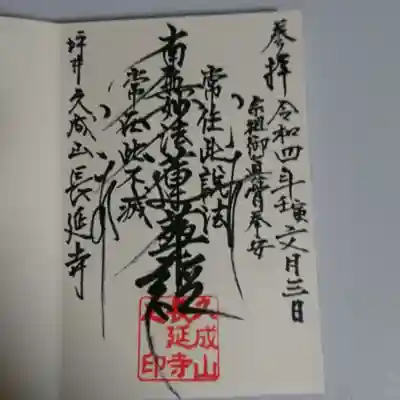 奉拝 令和四年壬寅文月三日
宗祖御真骨奉安
常住此説法
南無妙法蓮華経
常在此不滅
坪井 久成山長延寺
久成山
長延寺
之印